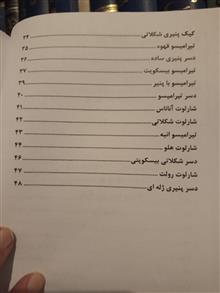 کیک پنیری شکلاتی ........ ۳۴
تیرامیسو قهوه ........ ۳۵
دسر پنیری ساده ........ ۳۶
تیرامیسو بیسکویت ........ ۳۷
تیرامیسو با پنیر ........ ۳۹
دسر تیرامیسو ........ ۴۰
شارلوت آناناس ........ ۴۱
شارلوت شکلاتی ........ ۴۲
تیرامیسو انبه ........ ۴۳
شارلوت هلو ........ ۴۴
دسر شکلاتی بیسکویتی ........ ۴۶
شارلوت رولت ........ ۴۷
دسر پنیری ژله ای ........ ۴۸